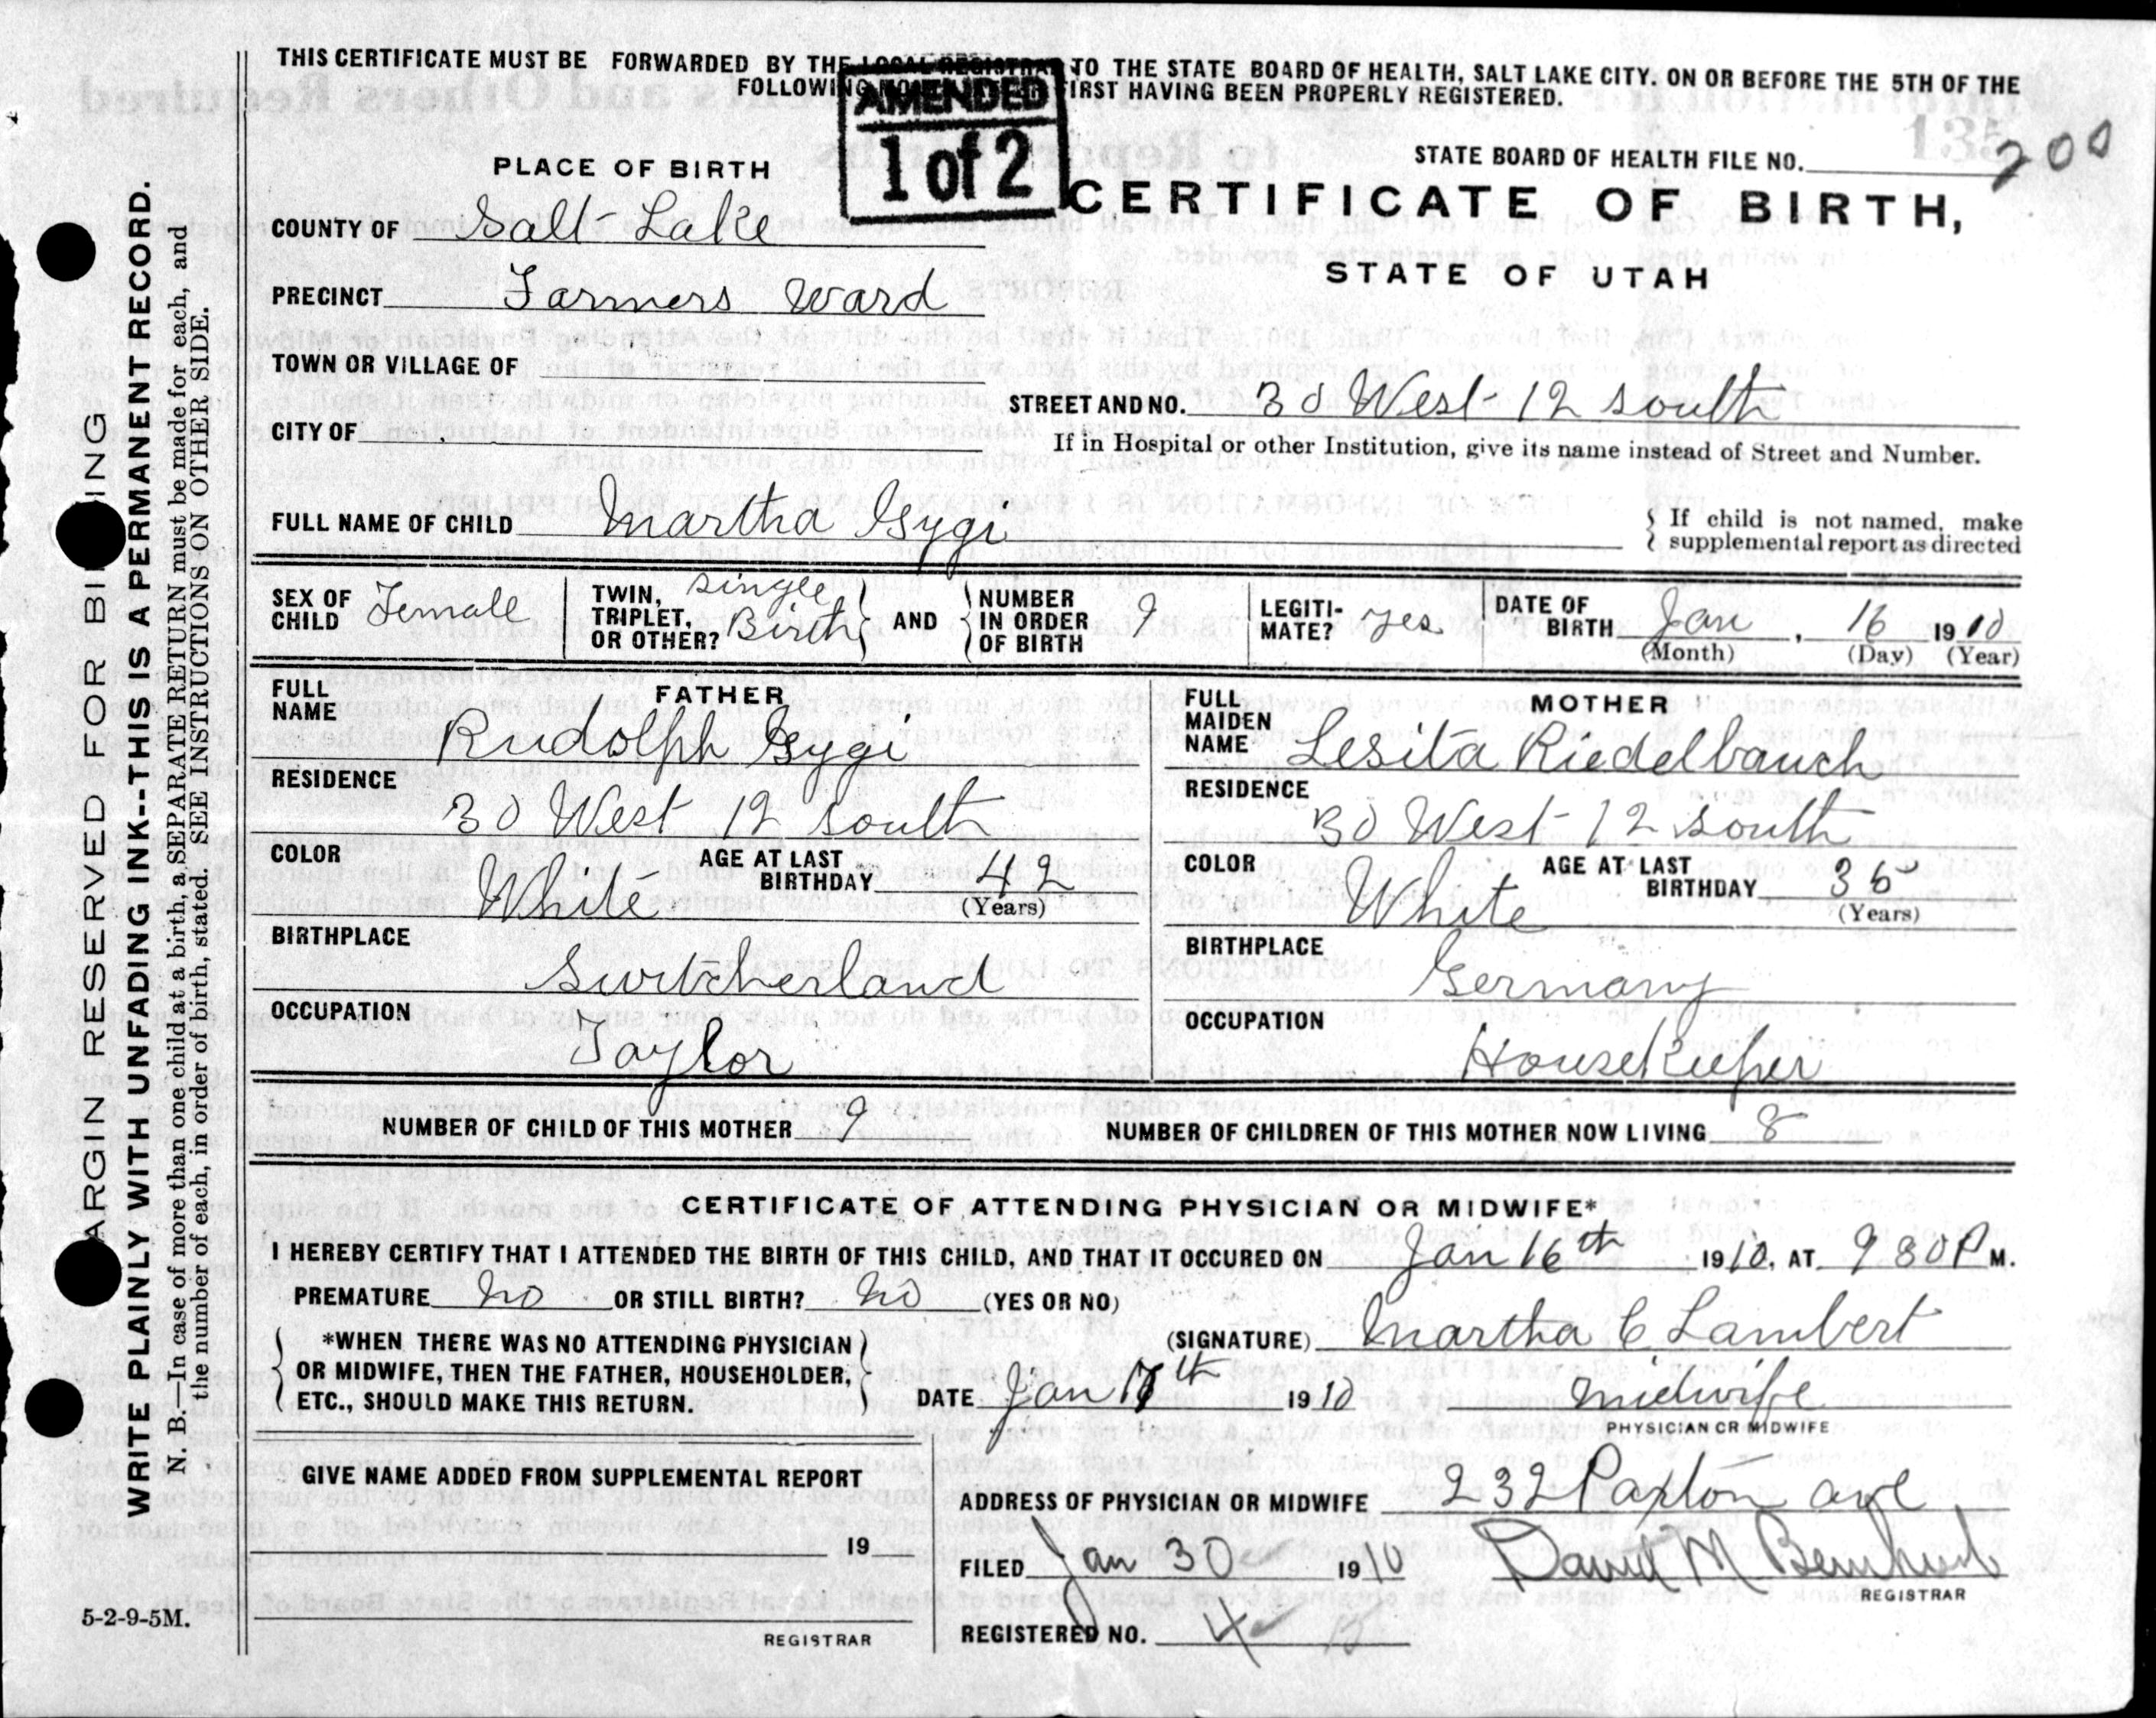 THIS CERTIFICATE MUST BE FORWARDED BY THE LOCAL REGISTRAR TO THE STATE BOARD OF HEALTH, SALT LAKE CITY. ON OR BEFORE THE 5TH OF THE
FOLLOWING FIRST HAVING BEEN PROPERLY REGISTERED.
AMENDED
1 of 2
STATE BOARD OF HEALTH FILE NO. 200
135
PLACE OF BIRTH
CERTIFICATE OF BIRTH,
STATE OF UTAH
COUNTY OF Salt Lake
PRECINCT Farmers Ward
TOWN OR VILLAGE OF
STREET AND NO. 30 West 12 South
CITY OF
If in Hospital or other Institution, give its name instead of Street and Number.
FULL NAME OF CHILD Martha Gygi
If child is not named, make
supplemental report as directed
SEX OF CHILD Female
TWIN, TRIPLET, OR OTHER? Single Birth
AND
NUMBER IN ORDER OF BIRTH 9
LEGITI-MATE? Yes
DATE OF BIRTH Jan, 16 1910
(Month) (Day) (Year)
FATHER
FULL NAME Rudolph Gygi
RESIDENCE 30 West 12 South
COLOR White
AGE AT LAST BIRTHDAY 42
(Years)
BIRTHPLACE Switcherland
OCCUPATION Taylor
MOTHER
FULL MAIDEN NAME Lesita Riedelbauch
RESIDENCE 30 West 12 South
COLOR White
AGE AT LAST BIRTHDAY 36
(Years)
BIRTHPLACE Germany
OCCUPATION HouseKeeper
NUMBER OF CHILD OF THIS MOTHER 9
NUMBER OF CHILDREN OF THIS MOTHER NOW LIVING 8
CERTIFICATE OF ATTENDING PHYSICIAN OR MIDWIFE*
I HEREBY CERTIFY THAT I ATTENDED THE BIRTH OF THIS CHILD, AND THAT IT OCCURED ON Jan 16th 1910, AT 9 30 P M.
PREMATURE No OR STILL BIRTH? No (YES OR NO)
*WHEN THERE WAS NO ATTENDING PHYSICIAN
OR MIDWIFE, THEN THE FATHER, HOUSEHOLDER,
ETC., SHOULD MAKE THIS RETURN.
(SIGNATURE) Martha C Lambert
DATE Jan 17th 1910
Midwife
PHYSICIAN OR MIDWIFE
GIVE NAME ADDED FROM SUPPLEMENTAL REPORT
19
REGISTRAR
ADDRESS OF PHYSICIAN OR MIDWIFE 232 Paxton ave
FILED Jan 30 1910
David M
REGISTRAR
REGISTERED NO. 4
5-2-9-5M.
ARGIN RESERVED FOR BI ING
WRITE PLAINLY WITH UNFADING INK--THIS IS A PERMANENT RECORD.
N. B.—In case of more than one child at a birth, a SEPARATE RETURN must be made for each, and
the number of each, in order of birth, stated. SEE INSTRUCTIONS ON OTHER SIDE.